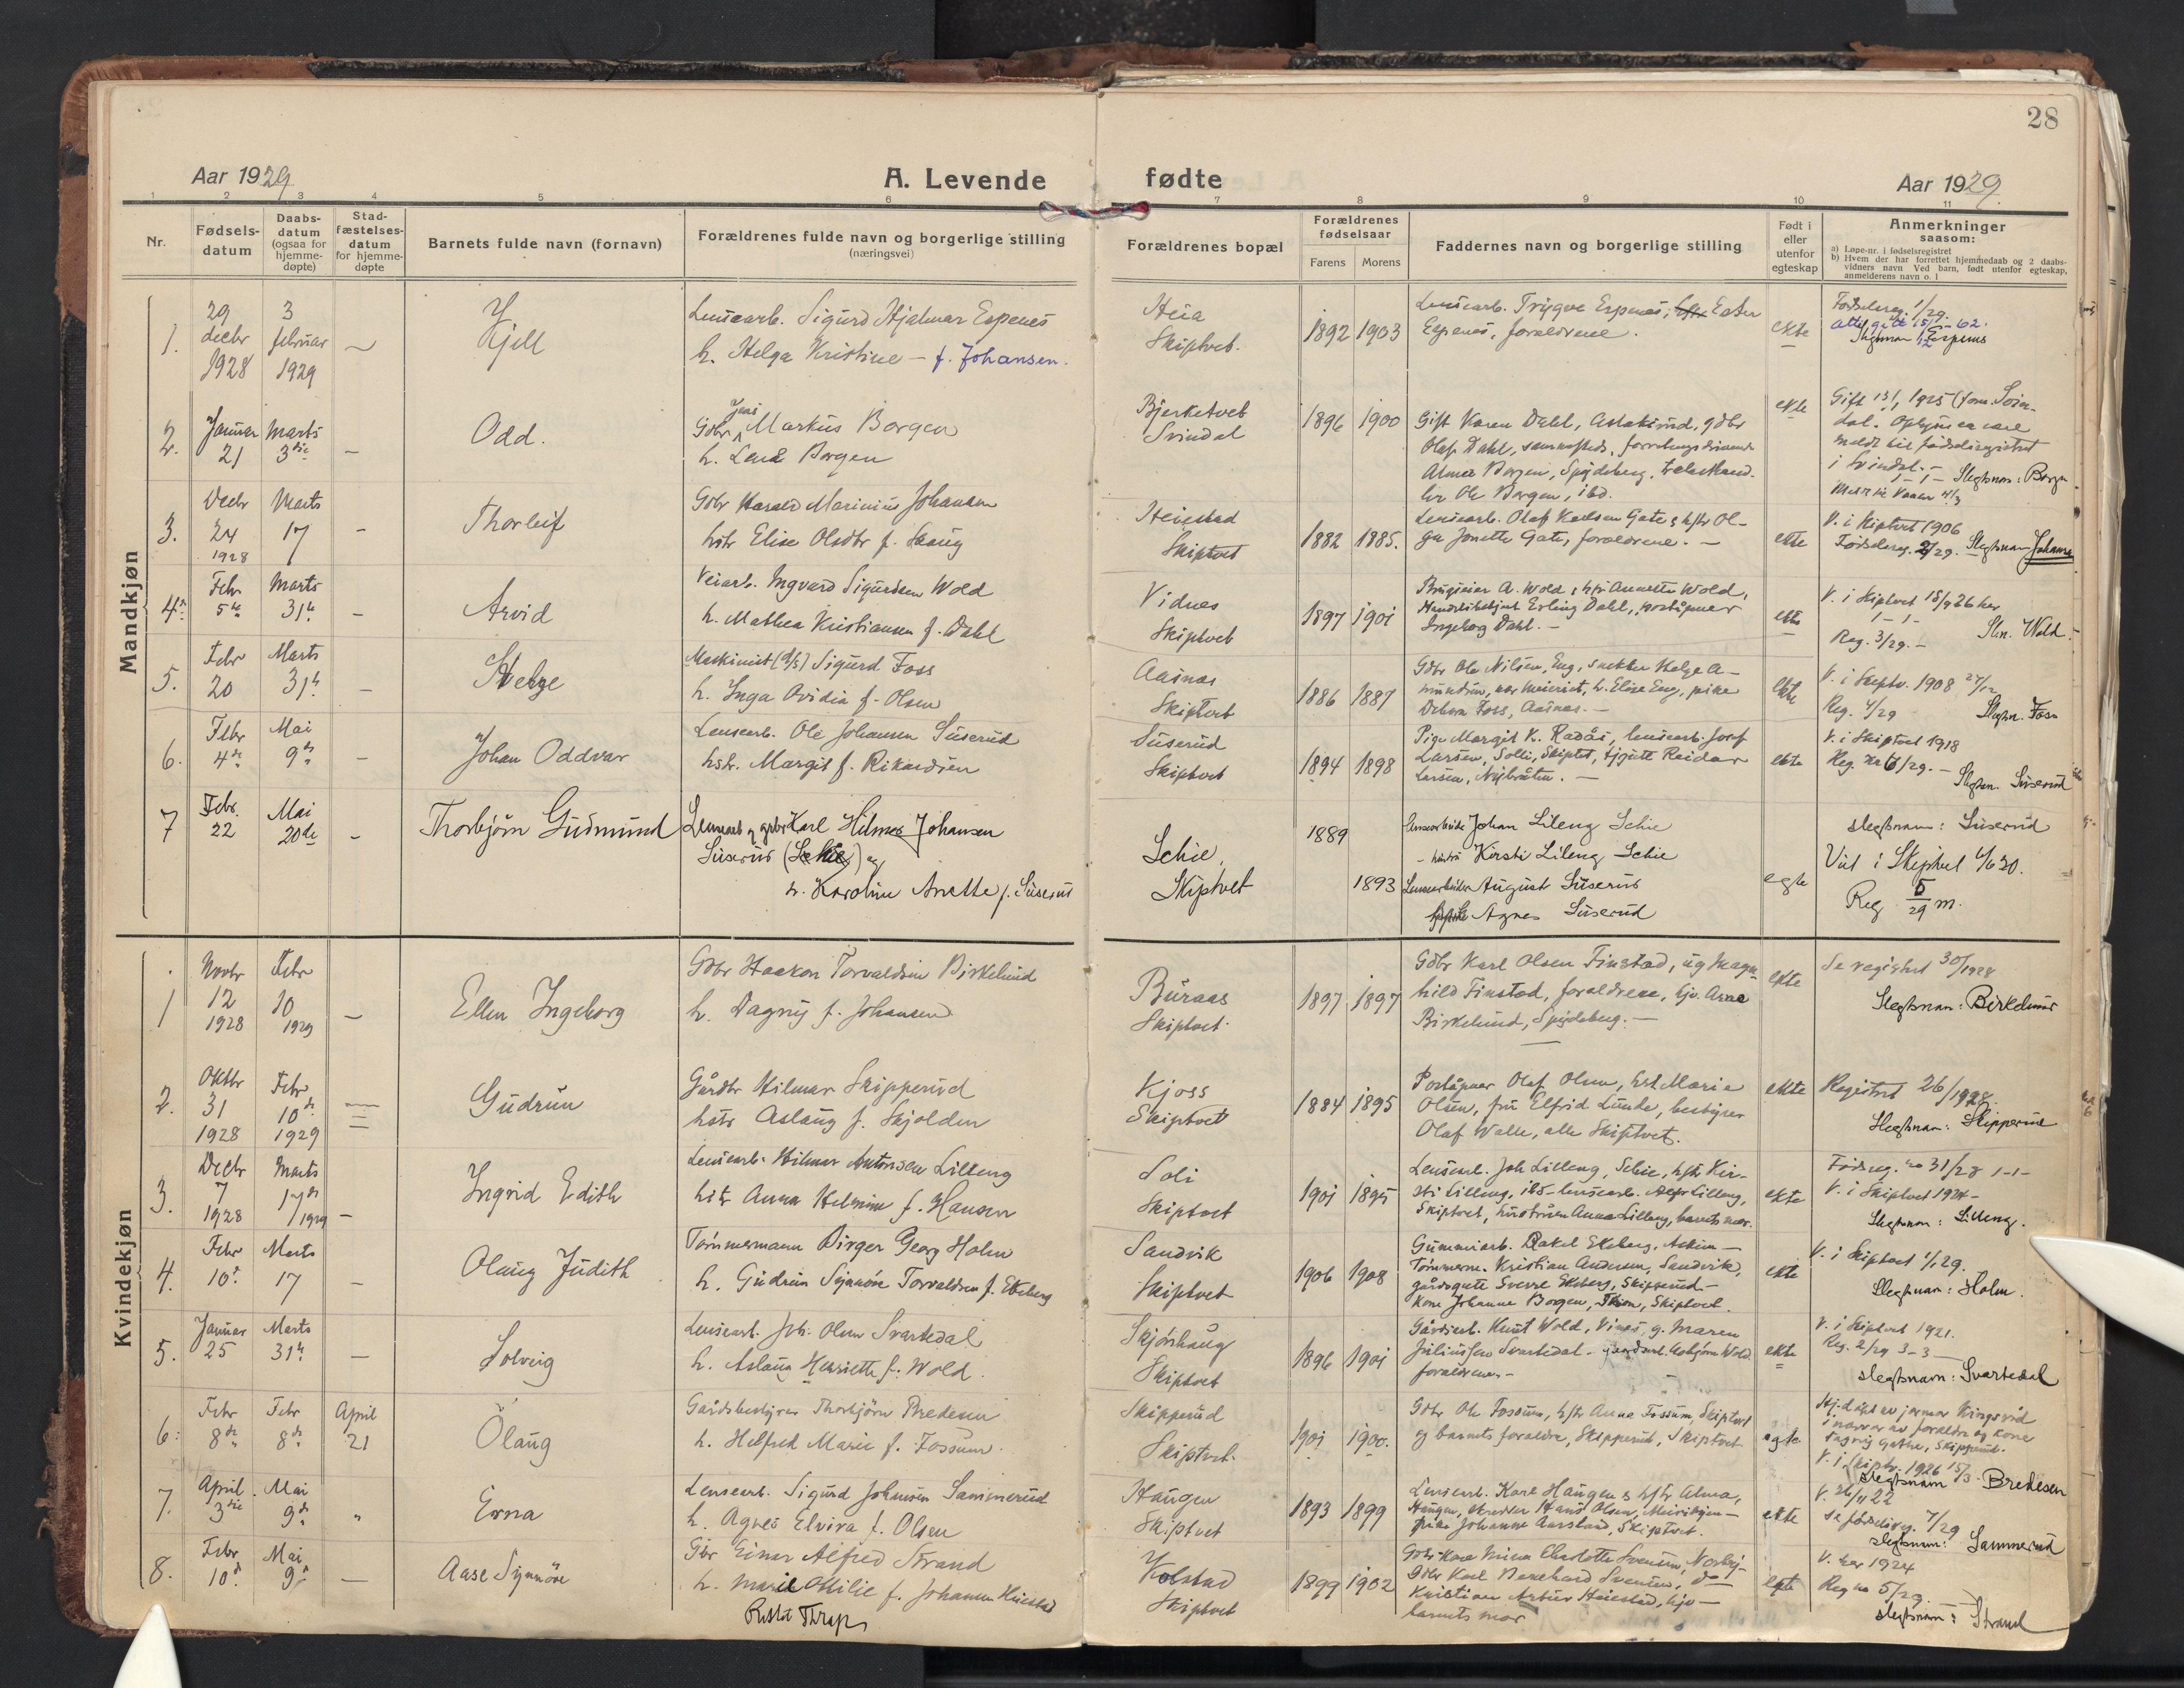 28
Aar 1929
A. Levende fødte
Aar 1929
1 2 3 4 5 6 7 8 9 10 11
Nr.
Fødsels-
datum
Daabs-
datum
(ogsaa for
hjemme-
døpte)
Stad-
fæstelses-
datum
for hjemme-
døpte
Barnets fulde navn (fornavn)
Forældrenes fulde navn og borgerlige stilling
(næringsvei)
Forældrenes bopæl
Forældrenes
fødselsaar
Farens Morens
Faddernes navn og borgerlige stilling
Født i
eller
utenfor
egteskap
Anmerkninger
saasom:
a) Løpe-nr. i fødselsregistret
b) Hvem der har forrettet hjemmedaab og 2 daabs-
vidners navn Ved barn, født utenfor egteskap,
anmelderens navn o. l
Mandkjøn
1.
29
decbr
1928
3
februar
1929
Kjell
Lensearb. Sigurd Hjalmar Espenes
h. Helga Kristine – f. Johansen.
Heia
Skiptvet.
1892 1903
Lensearb. Trygve Espenes, Ester
Espenes, foraldrene.
ekte
Fødselsreg. 1/29.
Slegtsnavn Espenes
2.
Januar
21
Marts
3die
Odd.
Jens
Gdbr Markus Borgen
h. Lena Borgen
Bjerketvet
Svindal
1896 1900
Gift Karen Dahl, gdbr
Olaf Dahl, sammesteds,
Alma Borgen, Spydeberg,
Ole Borgen, ibd.
ekte
Gift 1925
meldt til fødselsregistret
i Svindal. – Slegtsnavn: Borgen
3.
Decbr
24
1928
Marts
17
Thorleif
Gdbr Harald Marinius Johansen
hstr Elise Olsdtr f. Skaug
Heiestad
Skiptvet
1882 1885.
Lensearb. Olaf Karlsen Gate & hstr Ol-
ga Jonette Gate, foraldrene. –
ekte
V. i Skiptvet 1906
Fødselsreg. 2/29. Slegtsnavn Johansen
4de
Febr
5te
Marts
31te
Arvid
Veiarb. Ingvard Sigurdsen Wold
h. Mathea Kristiansen f. Dahl
Vidnes
Skiptvet
1897 1901
A. Wold & hstr Annette Wold,
Erling Dahl, poståpner
Ingeborg Dahl. –
ekte
V. i Skiptvet
Reg. 3/29. – Sln. Wold.
5.
Febr
20
Marts
31te
Helge
Maskinist Sigurd Foss
h. Inga Ovidia f. Olsen
Aasnes
Skiptvet
1886 1887
Gdbr Ole Nilsen, Eng, snekker Helge A-
mundsen, h. Elise Eng, pike
Foss, Aasnes. –
ekte
V. i Skiptv. 1908 27/12
Reg. 4/29 Slegtsn. Foss
6.
Febr
4de
Mai
9de
Johan Oddvar
Lensearb. Ole Johansen Suserud
hstr. Margit f. Rikardsen
Suserud
Skiptvet
1894 1898
Pige Margit K. Radås, lensearb. Josef
Larsen, Solli, Skiptvet, gutt Reidar
Larsen, Nybråten. –
ekte
V. i Skiptvet 1918
Reg. No 6/29. –
Slegtsn. Suserud
7
Febr.
22
Mai
20de
Thorbjørn Gudmund
Lensearb og gdbr Karl Hilmar Johansen
Suserud (Schie) og
h. Karoline Anette f. Suserud
Schie,
Skiptvet
1889
1893
Lensearbeider Johan Lileng Schie
– hustru Kirsti Lileng Schie
Lensearbeider August Suserud
Agnes Suserud
egte
slegtsnavn: Suserud
Viet i Skiptvet
Reg. 5/29 m.
Kvindekjøn
1
Novbr
12
1928
Febr
10
1929
Ellen Ingeborg
Gdbr Haakon Torvaldsen Birkelund
h. Dagny f. Johansen
Buraas
Skiptvet
1897 1897
Gdbr Karl Olsen Finstad, ug Magn-
hild Finstad, foraldrene, Arne
Birkelund, Spydeberg. –
ekte
Se registret 30/1928
Slegtsnavn: Birkelund
2.
Oktbr
31
1928
Febr
10de
1929
Gudrun
Gårdbr Hilmar Skipperud
hstr Aslaug f. Skjolden
Kjoss
Skiptvet
1884 1895
Poståpner Olaf Olsen, Marie
Olsen, fru Elfrid Lunde, bestyrer
Olaf Walle, alle Skiptvet.
ekte
Registret 26/1928.
Slegtsnavn: Skipperud
3.
Decbr
7
1928
Marts
17de
1929
Ingrid Edith
Lensearb. Hilmar Antonsen Lilleng
hstr Anna Helmine f. Hansen
Soli
Skiptvet
1901 1895
Lensearb. Joh Lilleng, Schie, hstr Kir-
sti Lilleng, ibd – lensearb. Lilleng,
Skiptvet, Anna Lilleng, barnets mor.
ekte
Fødsreg. no 31/28
V. i Skiptvet 1924 –
Slegtsnavn: Lilleng.
4.
Febr
10de
Marts
17
Olaug Judith
Tømmermann Birger Georg Holm
h. Gudrun Synnøve Torvaldsen f. Ekeberg
Sandvik
Skiptvet
1906 1908
Gummiarb. Rakel Ekeberg, Askim –
Tømmerm. Kristian Andersen, Sandvik,
gårdsgutt Sverre Ekeberg, Skipperud –
Kone Johanne Borgen, Skiptvet.
ekte
V. i Skiptvet 1/1 29.
Slegtsnavn: Holm.
5.
Januar
25
Marts
31te
Solveig
Lensearb. Joh. Olsen Svartedal
h. Aslaug Henriette f. Wold.
Skjønhaug
Skiptvet
1896 1901
Gårdsarb. Knut Wold, Vines, g. Maren
Svartedal – Wold
foraldrene –
ekte
V. i Skiptvet 1921.
Reg. 2/29
slegtsnavn: Svartedal
6.
Febr
8de
Febr
8de
April
21
Olaug
Gaardsbestyrer Thorbjørn Bredesen
h. Helfred Marie f. Fossum.
Skipperud
Skiptvet
1901 1900.
Gdbr Ole Fossum, hstr Anne Fossum, Skiptvet
og barnets foraldre, Skipperud, Skiptvet
egte
Hj. døpt av jormor Kingsrød
i nærvær av foraldre og kone
Dagny Gathe, Skipperud.
V. i Skiptv. 1926 15/3
slegtsnavn Bredesen
7.
April
3die
Mai
9de
Erna
Lensearb. Sigurd Johansen Sammerud
h. Agnes Elvira f. Olsen
Haugen
Skiptvet
1893 1899
Lensearb. Karl Haugen & hstr Alma,
Haugen, Hans Olsen,
pike Johanne Aarstad, Skiptvet.
ekte
V. 26/11 22
se fødselsreg. 7/29
slegtsnavn: Sammerud
8.
Febr
10de
Mai
9de
Aase Synnöve
Gbr Einar Alfred Strand
h. Marie Otilie f. Johansen Heiestad
Kolstad
Skiptvet
1899 1902
Gdbr kone Charlotte Svensen,
Gdbr Karl Svensen, do –
Kristian Artur Heiestad,
barnets mor
egte
V. her 1924
Reg no 5/29.
slegtsnavn: Strand